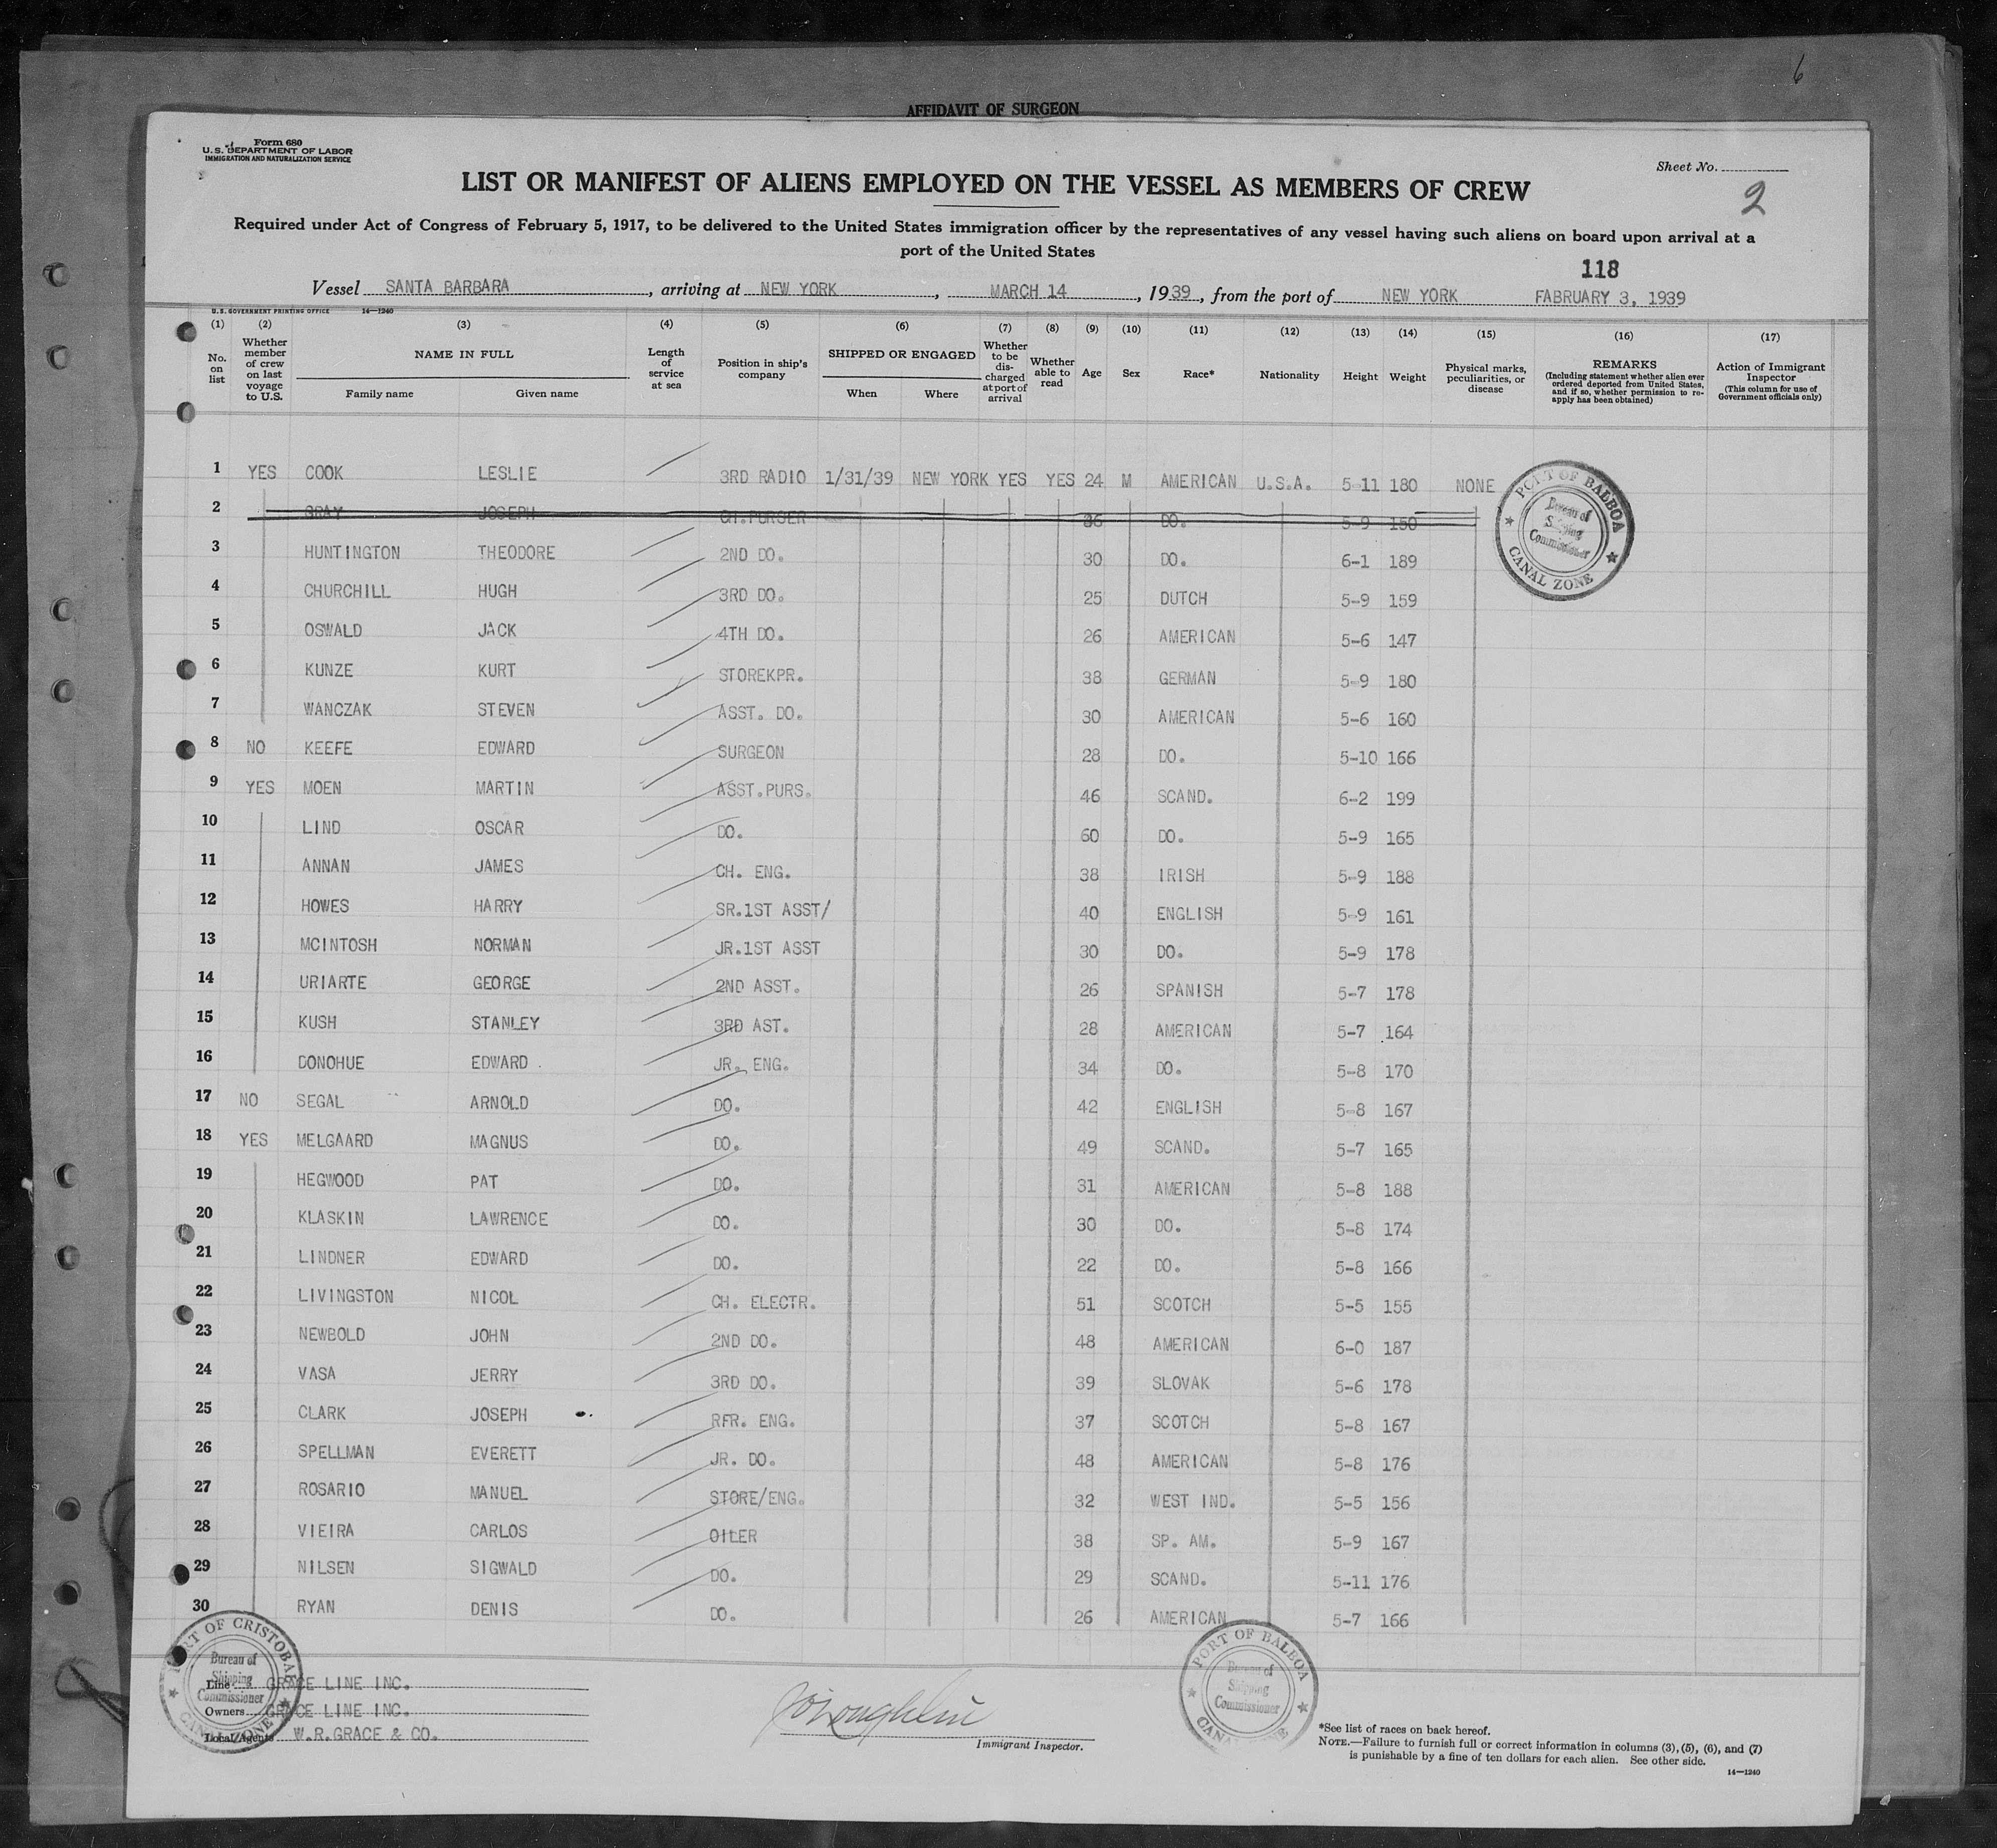 6
AFFIDAVIT OF SURGEON
Form 680
U. S. DEPARTMENT OF LABOR
IMMIGRATION AND NATURALIZATION SERVICE
Sheet No.
2
LIST OR MANIFEST OF ALIENS EMPLOYED ON THE VESSEL AS MEMBERS OF CREW
Required under Act of Congress of February 5, 1917, to be delivered to the United States immigration officer by the representatives of any vessel having such aliens on board upon arrival at a
port of the United States
118
Vessel SANTA BARBARA, arriving at NEW YORK, MARCH 14, 1939, from the port of NEW YORK FABRUARY 3, 1939
U. S. GOVERNMENT PRINTING OFFICE 14—1240
(1) (2) (3) (4) (5) (6) (7) (8) (9) (10) (11) (12) (13) (14) (15) (16) (17)
No. on list
Whether member of crew on last voyage to U.S.
NAME IN FULL
Family name Given name
Length of service at sea
Position in ship's company
SHIPPED OR ENGAGED
When Where
Whether to be discharged at port of arrival
Whether able to read
Age
Sex
Race*
Nationality
Height
Weight
Physical marks, peculiarities, or disease
REMARKS
(Including statement whether alien ever ordered deported from United States, and if so, whether permission to re-apply has been obtained)
Action of Immigrant Inspector
(This column for use of Government officials only)
1 YES COOK LESLIE 3RD RADIO 1/31/39 NEW YORK YES YES 24 M AMERICAN U.S.A. 5-11 180 NONE
2 GRAY JOSEPH CH.PURSER 36 DO. 5-9 150
3 HUNTINGTON THEODORE 2ND DO. 30 DO. 6-1 189
4 CHURCHILL HUGH 3RD DO. 25 DUTCH 5-9 159
5 OSWALD JACK 4TH DO. 26 AMERICAN 5-6 147
6 KUNZE KURT STOREKPR. 38 GERMAN 5-9 180
7 WANCZAK STEVEN ASST. DO. 30 AMERICAN 5-6 160
8 NO KEEFE EDWARD SURGEON 28 DO. 5-10 166
9 YES MOEN MARTIN ASST.PURS. 46 SCAND. 6-2 199
10 LIND OSCAR DO. 60 DO. 5-9 165
11 ANNAN JAMES CH. ENG. 38 IRISH 5-9 188
12 HOWES HARRY SR.1ST ASST/ 40 ENGLISH 5-9 161
13 MCINTOSH NORMAN JR.1ST ASST 30 DO. 5-9 178
14 URIARTE GEORGE 2ND ASST. 26 SPANISH 5-7 178
15 KUSH STANLEY 3RD AST. 28 AMERICAN 5-7 164
16 DONOHUE EDWARD JR. ENG. 34 DO. 5-8 170
17 NO SEGAL ARNOLD DO. 42 ENGLISH 5-8 167
18 YES MELGAARD MAGNUS DO. 49 SCAND. 5-7 165
19 HEGWOOD PAT DO. 31 AMERICAN 5-8 188
20 KLASKIN LAWRENCE DO. 30 DO. 5-8 174
21 LINDNER EDWARD DO. 22 DO. 5-8 166
22 LIVINGSTON NICOL CH. ELECTR. 51 SCOTCH 5-5 155
23 NEWBOLD JOHN 2ND DO. 48 AMERICAN 6-0 187
24 VASA JERRY 3RD DO. 39 SLOVAK 5-6 178
25 CLARK JOSEPH RFR. ENG. 37 SCOTCH 5-8 167
26 SPELLMAN EVERETT JR. DO. 48 AMERICAN 5-8 176
27 ROSARIO MANUEL STORE/ENG. 32 WEST IND. 5-5 156
28 VIEIRA CARLOS OILER 38 SP. AM. 5-9 167
29 NILSEN SIGWALD DO. 29 SCAND. 5-11 176
30 RYAN DENIS DO. 26 AMERICAN 5-7 166
PORT OF BALBOA
Bureau of
Shipping
Commissioner
CANAL ZONE
PORT OF CRISTOBAL
Bureau of
Shipping
Commissioner
CANAL ZONE
Line GRACE LINE INC.
Owners GRACE LINE INC.
Local Agents W.R.GRACE & CO.
Immigrant Inspector.
PORT OF BALBOA
Bureau of
Shipping
Commissioner
CANAL ZONE
*See list of races on back hereof.
NOTE.—Failure to furnish full or correct information in columns (3), (5), (6), and (7)
is punishable by a fine of ten dollars for each alien. See other side.
14—1240